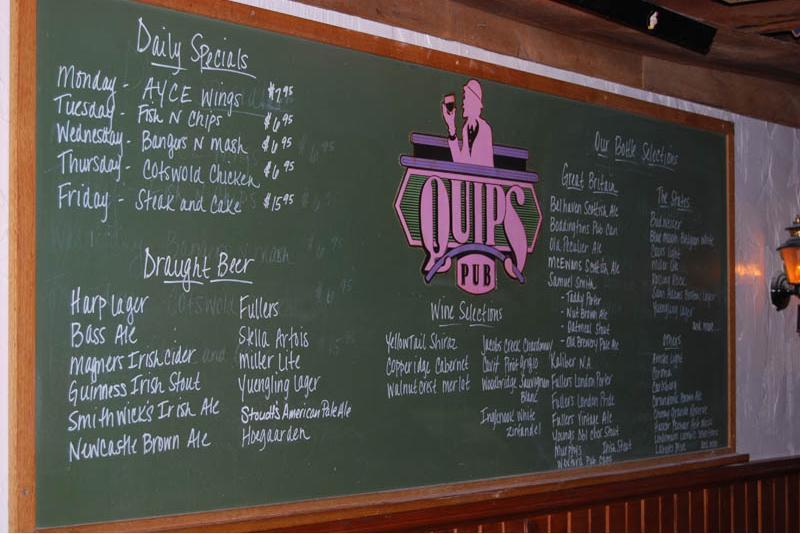 Daily Specials
Monday - AYCE Wings $7.95
Tuesday - Fish N Chips $6.95
Wednesday - Bangers N mash $6.95
Thursday - Cotswold Chicken $6.95
Friday - Steak and Cake $15.95
Draught Beer
Harp lager
Bass Ale
Magners Irish cider
Guinness Irish Stout
Smithwick's Irish Ale
Newcastle Brown Ale
Fullers
Stella Artois
Miller Lite
Yuengling Lager
Stoudt's American Pale Ale
Hoegaarden
QUIPS
PUB
Wine Selections
Yellow Tail Shiraz
Copperidge Cabernet
Walnut Crest merlot
Jacobs Creek Chardonnay
Cavit Pinot Grigio
Woodbridge Sauvignon
Blanc
Inglenook White
Zinfandel
Our Bottle Selections
Great Britain
Belhaven Scottish Ale
Boddingtons Pub Can
Old Peculier Ale
McEwans Scottish Ale
Samuel Smith
- Taddy Porter
- Nut Brown Ale
- Oatmeal Stout
- Old Brewery Pale Ale
Kaliber N.A.
Fullers London Porter
Fuller's London Pride
Fullers Vintage Ale
Youngs Dbl Choc Stout
Murphy's Irish Stout
Pub
The States
Budweiser
Blue Moon Belgian White
Coors Light
Miller Lite
Rolling Rock
Sam Adams Boston Lager
Yuengling Lager
and more...
Others
Amstel Light
Corona
Carlsberg
and more